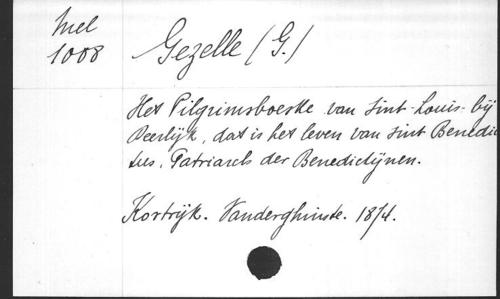 Mel
1008
Gezelle (G.)
Het Pilgrimsboeske van Sint-Louis-bij
Deerlijk, dat is het leven van Sint Benedic
tus, Patriarch der Benedictijnen.
Kortrijk. Vanderghinste. 1874.